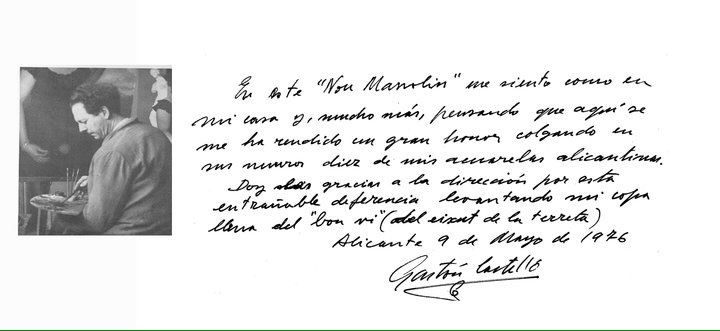 En este "Nou Manolin" me siento como en
mi casa y, mucho más, pensando que aquí se
me ha rendido un gran honor colgando en
sus muros diez de mis acuarelas alicantinas.
Doy las gracias a la dirección por esta
entrañable deferencia levantando mi copa
llena del "bon vi" (del eixut de la terreta)
Alicante 9 de Mayo de 1976
Gastón Castelló